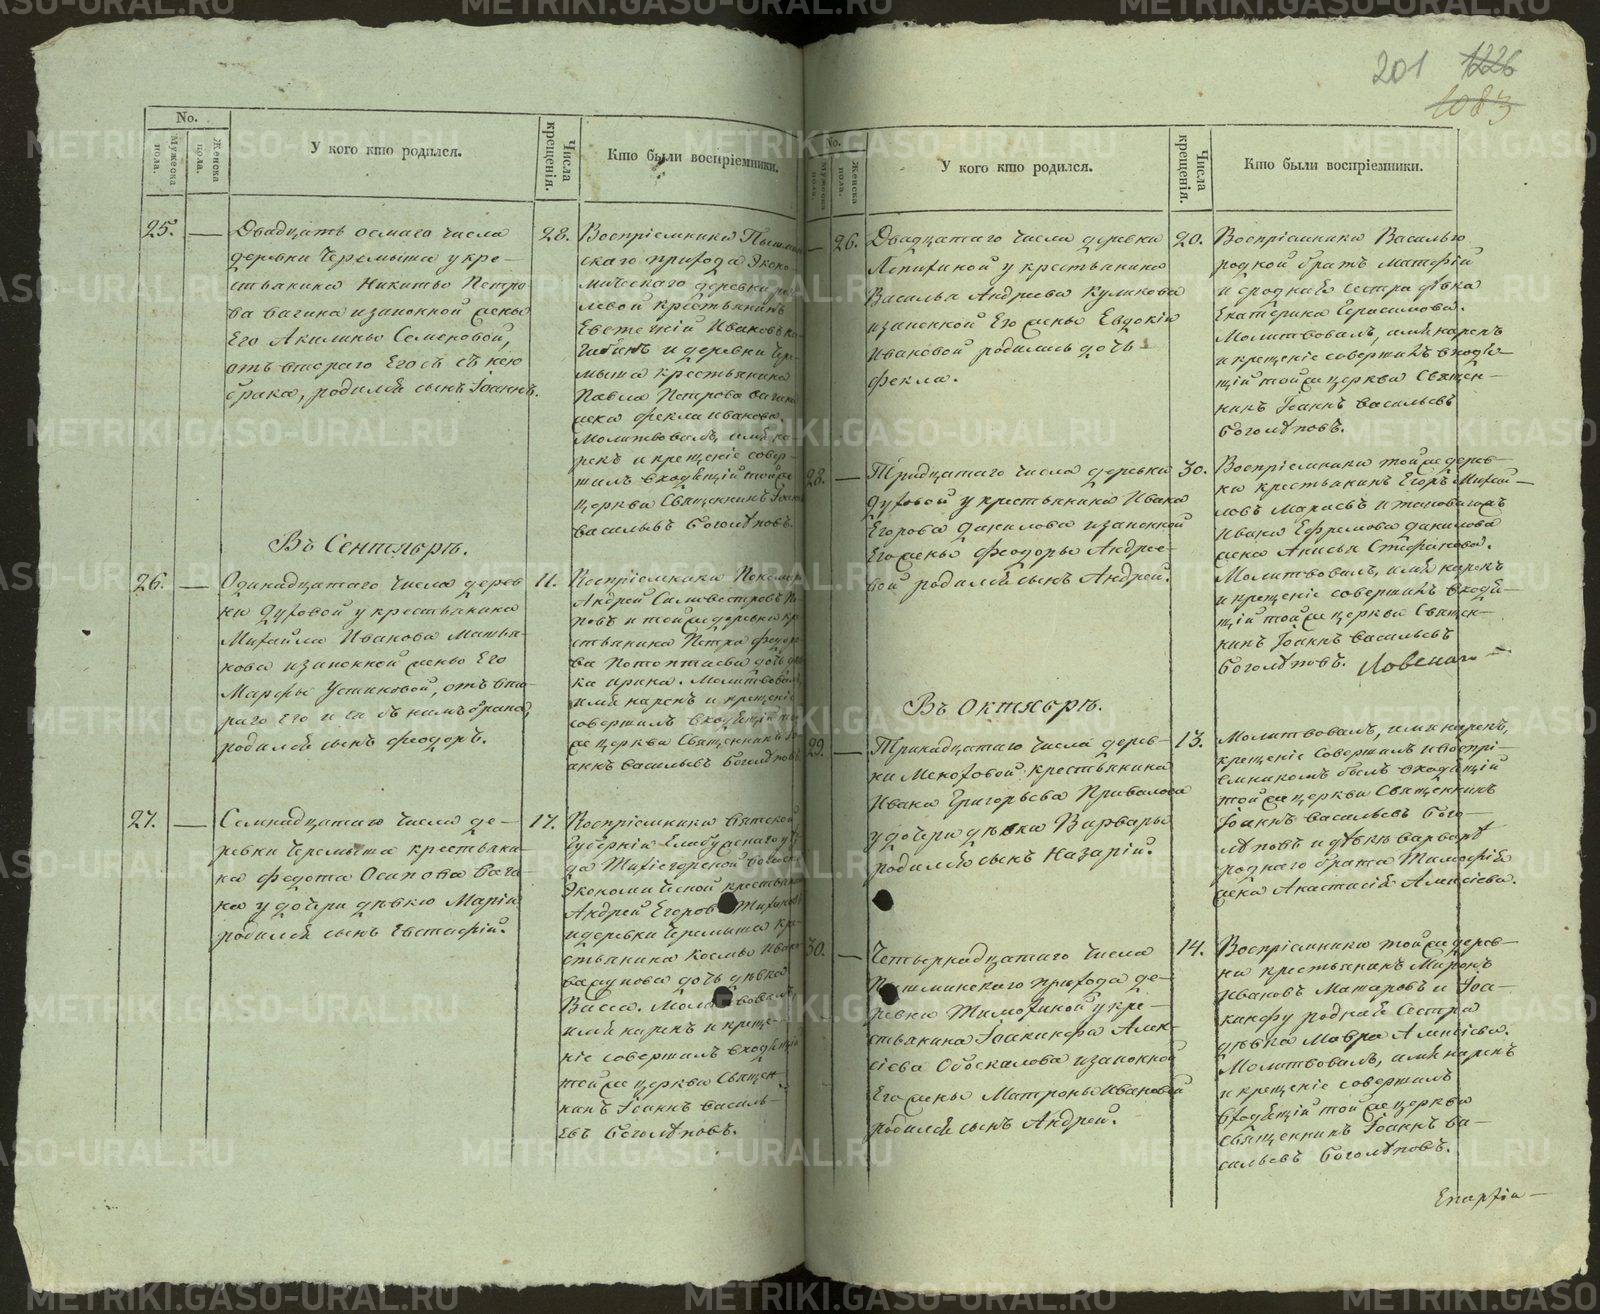 201 1226
1083
No.
Мужеска пола.
Женска пола.
У кого кто родился.
Числа крещенія.
Кто были воспріемники.
25. — Двадцать осмаго числа
деревни Черемыша у кре-
стьянина Никиты Петро
ва вагина изаконной жены
Его Акилины Семеновой,
отъ втораго Его съ нею
брака, родился сынъ Іоаннъ.
28. Воспріемники
скаго прихода Эконо
мическаго деревни
левой крестьянинъ
Евстегній Ивановъ
и деревни Чере
мыша крестьянина
Павла Петрова вагина
жена Фекла Иванова.
Молитвовалъ, имя на
рекъ и крещеніе совер-
шилъ входящій тойже
церкви Священникъ Іоаннъ
васильевъ Боголѣповъ.
Въ Сентябрѣ.
26. — Одинадцатаго числа дерев
ни Духовой у крестьянина
Михайла Иванова
изаконной жены Его
Марфы Устиновой, отъ вто-
раго Его и ея съ нимъ брака,
родился сынъ Феодоръ.
11. Воспріемники
Андрей Силивестровъ По
повъ и тойже деревни кре
стьянина Петра Федоро
ва дочь дѣв
ка Ирина. Молитвовалъ,
имя нарекъ и крещеніе
совершилъ входящій той
же церкви Священникъ Іо
аннъ васильевъ Боголѣповъ.
27. — Семнадцатаго числа де-
ревни Черемыша крестьяни-
на Федота Осипова Ваги
на у дочери дѣвки Маріи
родился сынъ Евстафій.
17. Воспріемники вятской
губерніи Елабужскаго уѣз
да волости
Экономической крестьянинъ
Андрей Егоровъ
и деревни Черемыша кре
стьянина Космы Ивано
дочь дѣвка
Васса. Молитвовалъ,
имя нарекъ и креще-
ніе совершилъ входящій
тойже церкви Священ-
никъ Іоаннъ василь-
евъ Боголѣповъ.
No.
Мужеска пола.
Женска пола.
У кого кто родился.
Числа крещенія.
Кто были воспріемники.
— 26. Двадцатаго числа деревни
Лепихиной у крестьянина
Василья Андреева Куликова
изаконной Его жены Евдокіи
Ивановой родилась дочь
Фекла.
20. Воспріемники Василью
родной братъ Матфій
и сродная сестра дѣвка
Екатерина Герасимова.
Молитвовалъ, имя нарекъ
и крещеніе совершилъ входя-
щій тойже церкви Священ-
никъ Іоаннъ васильевъ
Боголѣповъ.
28. — Тридцатаго числа деревни
Духовой у крестьянина Ивана
Егорова Данилова изаконной
Его жены Феодоры Андрее-
вой родился сынъ Андрей.
30. Воспріемники тойже дерев-
ни крестьянинъ Егоръ Михай-
ловъ
Ивана Ефремова Данилова
жена Анисья Стефанова.
Молитвовалъ, имя нарекъ
и крещеніе совершилъ входя-
щій тойже церкви Священ-
никъ Іоаннъ васильевъ
Боголѣповъ.
Въ Октябрѣ.
29. — Тринадцатаго числа дерев-
ни Меноховой крестьянина
Ивана Григорьева Привалова
у дочери дѣвки Варвары
родился сынъ Назарій.
13. Молитвовалъ, имя нарекъ,
крещеніе совершилъ и воспрі-
емникомъ былъ входящій
тойже церкви Священникъ
Іоаннъ васильевъ Бого-
лѣповъ и дѣвкѣ варварѣ
роднаго брата Тимофѣя
жена Анастасія Алексіева.
30. — Четырнадцатаго числа
Пышминскаго прихода де-
ревни Тимохиной у кре-
стьянина Іоаникфа Алек-
сіева Обоскалова изаконной
Его жены Матроны Ивановой
родился сынъ Андрей.
14. Воспріемники тойже дерев-
ни крестьянинъ Миронъ
Ивановъ и Іоа-
никфу родная сестра
дѣвка Мавра Алексіева.
Молитвовалъ, имя нарекъ
и крещеніе совершилъ
входящій тойже церкви
священникъ Іоаннъ ва-
сильевъ Боголѣповъ.
Епархіи —
METRIKI.GASO-URAL.RU